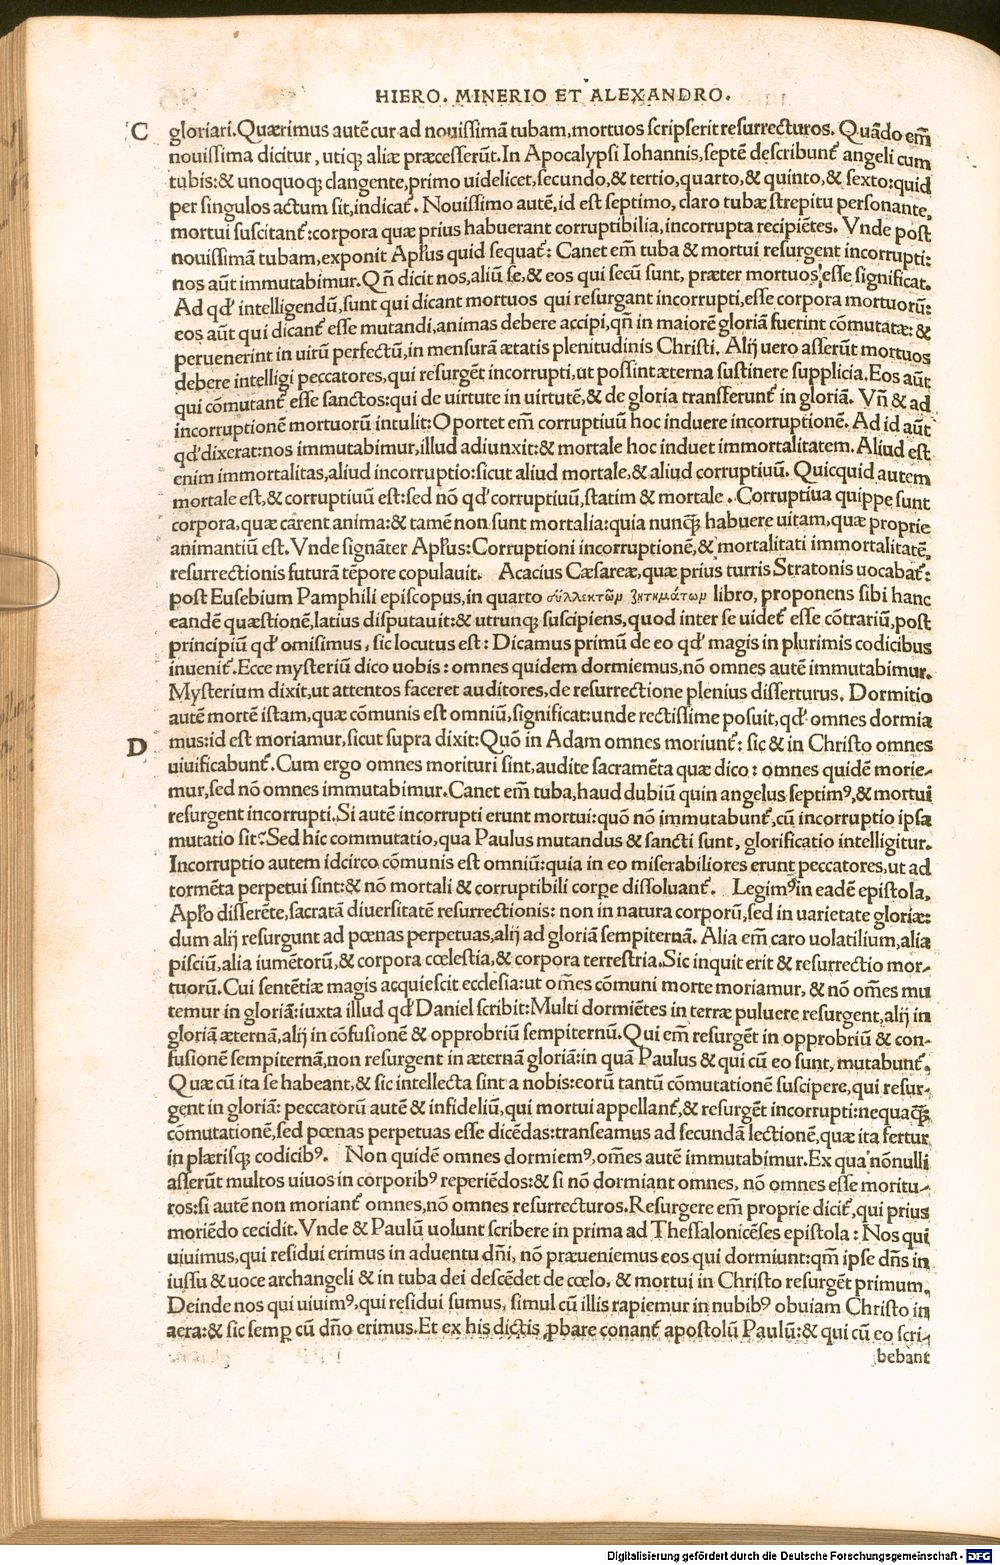 HIERO. MINERIO ET ALEXANDRO.
C
gloriari.Quærimus autẽ cur ad nouissimã tubam,mortuos scripserit resurrecturos. Quãdo em̃
nouissima dicitur, utiqꝫ aliæ præcesserũt.In Apocalypsi Iohannis,septẽ describunt᷑ angeli cum
tubis:& unoquoqꝫ clangente,primo uidelicet,secundo,& tertio,quarto,& quinto,& sexto:quid
per singulos actum sit,indicat᷑. Nouissimo autẽ,id est septimo, claro tubæ strepitu personante,
mortui suscitant᷑:corpora quæ prius habuerant corruptibilia,incorrupta recipiẽtes. Vnde post
nouissimã tubam,exponit Apl'us quid sequat᷑: Canet em̃ tuba & mortui resurgent incorrupti:
nos aũt immutabimur.Qñ dicit nos,aliũ se,& eos qui secũ sunt, præter mortuos esse significat.
Ad qd' intelligendũ,sunt qui dicant mortuos qui resurgant incorrupti,esse corpora mortuorũ:
eos aũt qui dicant᷑ esse mutandi,animas debere accipi,qñ in maiorẽ gloriã fuerint cõmutatæ: &
peruenerint in uirũ perfectũ,in mensurã ætatis plenitudinis Christi. Alij uero asserũt mortuos
debere intelligi peccatores,qui resurgẽt incorrupti,ut possint æterna sustinere supplicia.Eos aũt
qui cõmutant᷑ esse sanctos:qui de uirtute in uirtutẽ,& de gloria transferunt᷑ in gloriã. Vñ & ad
incorruptionẽ mortuorũ intulit:Oportet em̃ corruptiuũ hoc induere incorruptionẽ. Ad id aũt
qd' dixerat:nos immutabimur,illud adiunxit:& mortale hoc induet immortalitatem. Aliud est
enim immortalitas,aliud incorruptio:sicut aliud mortale,& aliud corruptiuũ. Quicquid autem
mortale est,& corruptiuũ est:sed nõ qd' corruptiuũ,statim & mortale . Corruptiua quippe sunt
corpora,quæ carent anima:& tamẽ non sunt mortalia:quia nunqꝫ̃ habuere uitam,quæ proprie
animantiũ est. Vnde signãter Apl'us:Corruptioni incorruptionẽ,& mortalitati immortalitatẽ,
resurrectionis futurã tẽpore copulauit. Acacius Cæsareæ,quæ prius turris Stratonis uocabat᷑:
post Eusebium Pamphili episcopus,in quarto συλλεκτῶμ ζητημάτωμ libro, proponens sibi hanc
eandẽ quæstionẽ,latius disputauit:& utrunqꝫ suscipiens,quod inter se uidet᷑ esse cõtrariũ,post
principiũ qd' omisimus, sic locutus est: Dicamus primũ de eo qd' magis in plurimis codicibus
inuenit᷑.Ecce mysteriũ dico uobis: omnes quidem dormiemus,nõ omnes autẽ immutabimur.
Mysterium dixit,ut attentos faceret auditores,de resurrectione plenius disserturus. Dormitio
autẽ mortẽ istam,quæ cõmunis est omniũ,significat:unde rectissime posuit,qd' omnes dormia
D
mus:id est moriamur,sicut supra dixit:Quõ in Adam omnes moriunt᷑: sic & in Christo omnes
uiuificabunt᷑.Cum ergo omnes morituri sint,audite sacramẽta quæ dico: omnes quidẽ morie-
mur,sed nõ omnes immutabimur.Canet em̃ tuba,haud dubiũ quin angelus septimꝰ,& mortui
resurgent incorrupti.Si autẽ incorrupti erunt mortui:quõ nõ immutabunt᷑,cũ incorruptio ipsa
mutatio sit?Sed hic commutatio,qua Paulus mutandus & sancti sunt, glorificatio intelligitur.
Incorruptio autem idcirco cõmunis est omniũ:quia in eo miserabiliores erunt peccatores,ut ad
tormẽta perpetui sint:& nõ mortali & corruptibili corꝑe dissoluant᷑. Legimꝰ in eadẽ epistola,
Apl'o disserẽte,sacratã diuersitatẽ resurrectionis: non in natura corporũ,sed in uarietate gloriæ:
dum alij resurgunt ad pœnas perpetuas,alij ad gloriã sempiternã. Alia em̃ caro uolatilium,alia
pisciũ,alia iumẽtorũ,& corpora cœlestia,& corpora terrestria.Sic inquit erit & resurrectio mor-
tuorũ.Cui sentẽtiæ magis acquiescit ecclesia:ut om̃es cõmuni morte moriamur, & nõ om̃es mu
temur in gloriã:iuxta illud qd' Daniel scribit:Multi dormiẽtes in terræ puluere resurgent,alij in
gloriã æternã,alij in cõfusionẽ & opprobriũ sempiternũ.Qui em̃ resurgẽt in opprobriũ & con-
fusionẽ sempiternã,non resurgent in æternã gloriã:in quã Paulus & qui cũ eo sunt, mutabunt᷑.
Quæ cũ ita se habeant,& sic intellecta sint a nobis:eorũ tantũ cõmutationẽ suscipere,qui resur-
gent in gloriã: peccatorũ autẽ & infideliũ,qui mortui appellant᷑,& resurgẽt incorrupti:nequaqꝫ̃
cõmutationẽ,sed pœnas perpetuas esse dicẽdas:transeamus ad secundã lectionẽ,quæ ita fertur
in plærisqꝫ codicibꝰ. Non quidẽ omnes dormiemꝰ,om̃es autẽ immutabimur.Ex qua nõnulli
asserũt multos uiuos in corporibꝰ reperiẽdos:& si nõ dormiant omnes, nõ omnes esse moritu-
ros:si autẽ non moriant᷑ omnes,nõ omnes resurrecturos.Resurgere em̃ proprie dicit᷑,qui prius
moriẽdo cecidit.Vnde & Paulũ uolunt scribere in prima ad Thessalonicẽses epistola: Nos qui
uiuimus,qui residui erimus in aduentu dñi, nõ præueniemus eos qui dormiunt:qm̃ ipse dñs in
iussu & uoce archangeli & in tuba dei descẽdet de cœlo, & mortui in Christo resurgẽt primum.
Deinde nos qui uiuimꝰ,qui residui sumus, simul cũ illis rapiemur in nubibꝰ obuiam Christo in
aera:& sic semꝑ cũ dño erimus.Et ex his dictis ꝓbare conant᷑ apostolũ Paulũ:& qui cũ eo scri-
bebant
Digitalisierung gefördert durch die Deutsche Forschungsgemeinschaft - DFG